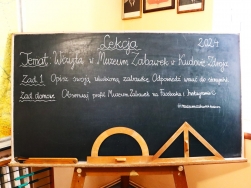 Lekcja 2024
Temat: Wizyta w Muzeum Zabawek w Kudowie Zdroju
Zad 1. Opisz swoją ulubioną zabawkę. Odpowiedź wrzuć do
Zad domowe. Obserwuj profil Muzeum Zabawek na Facebooku i Instagramie